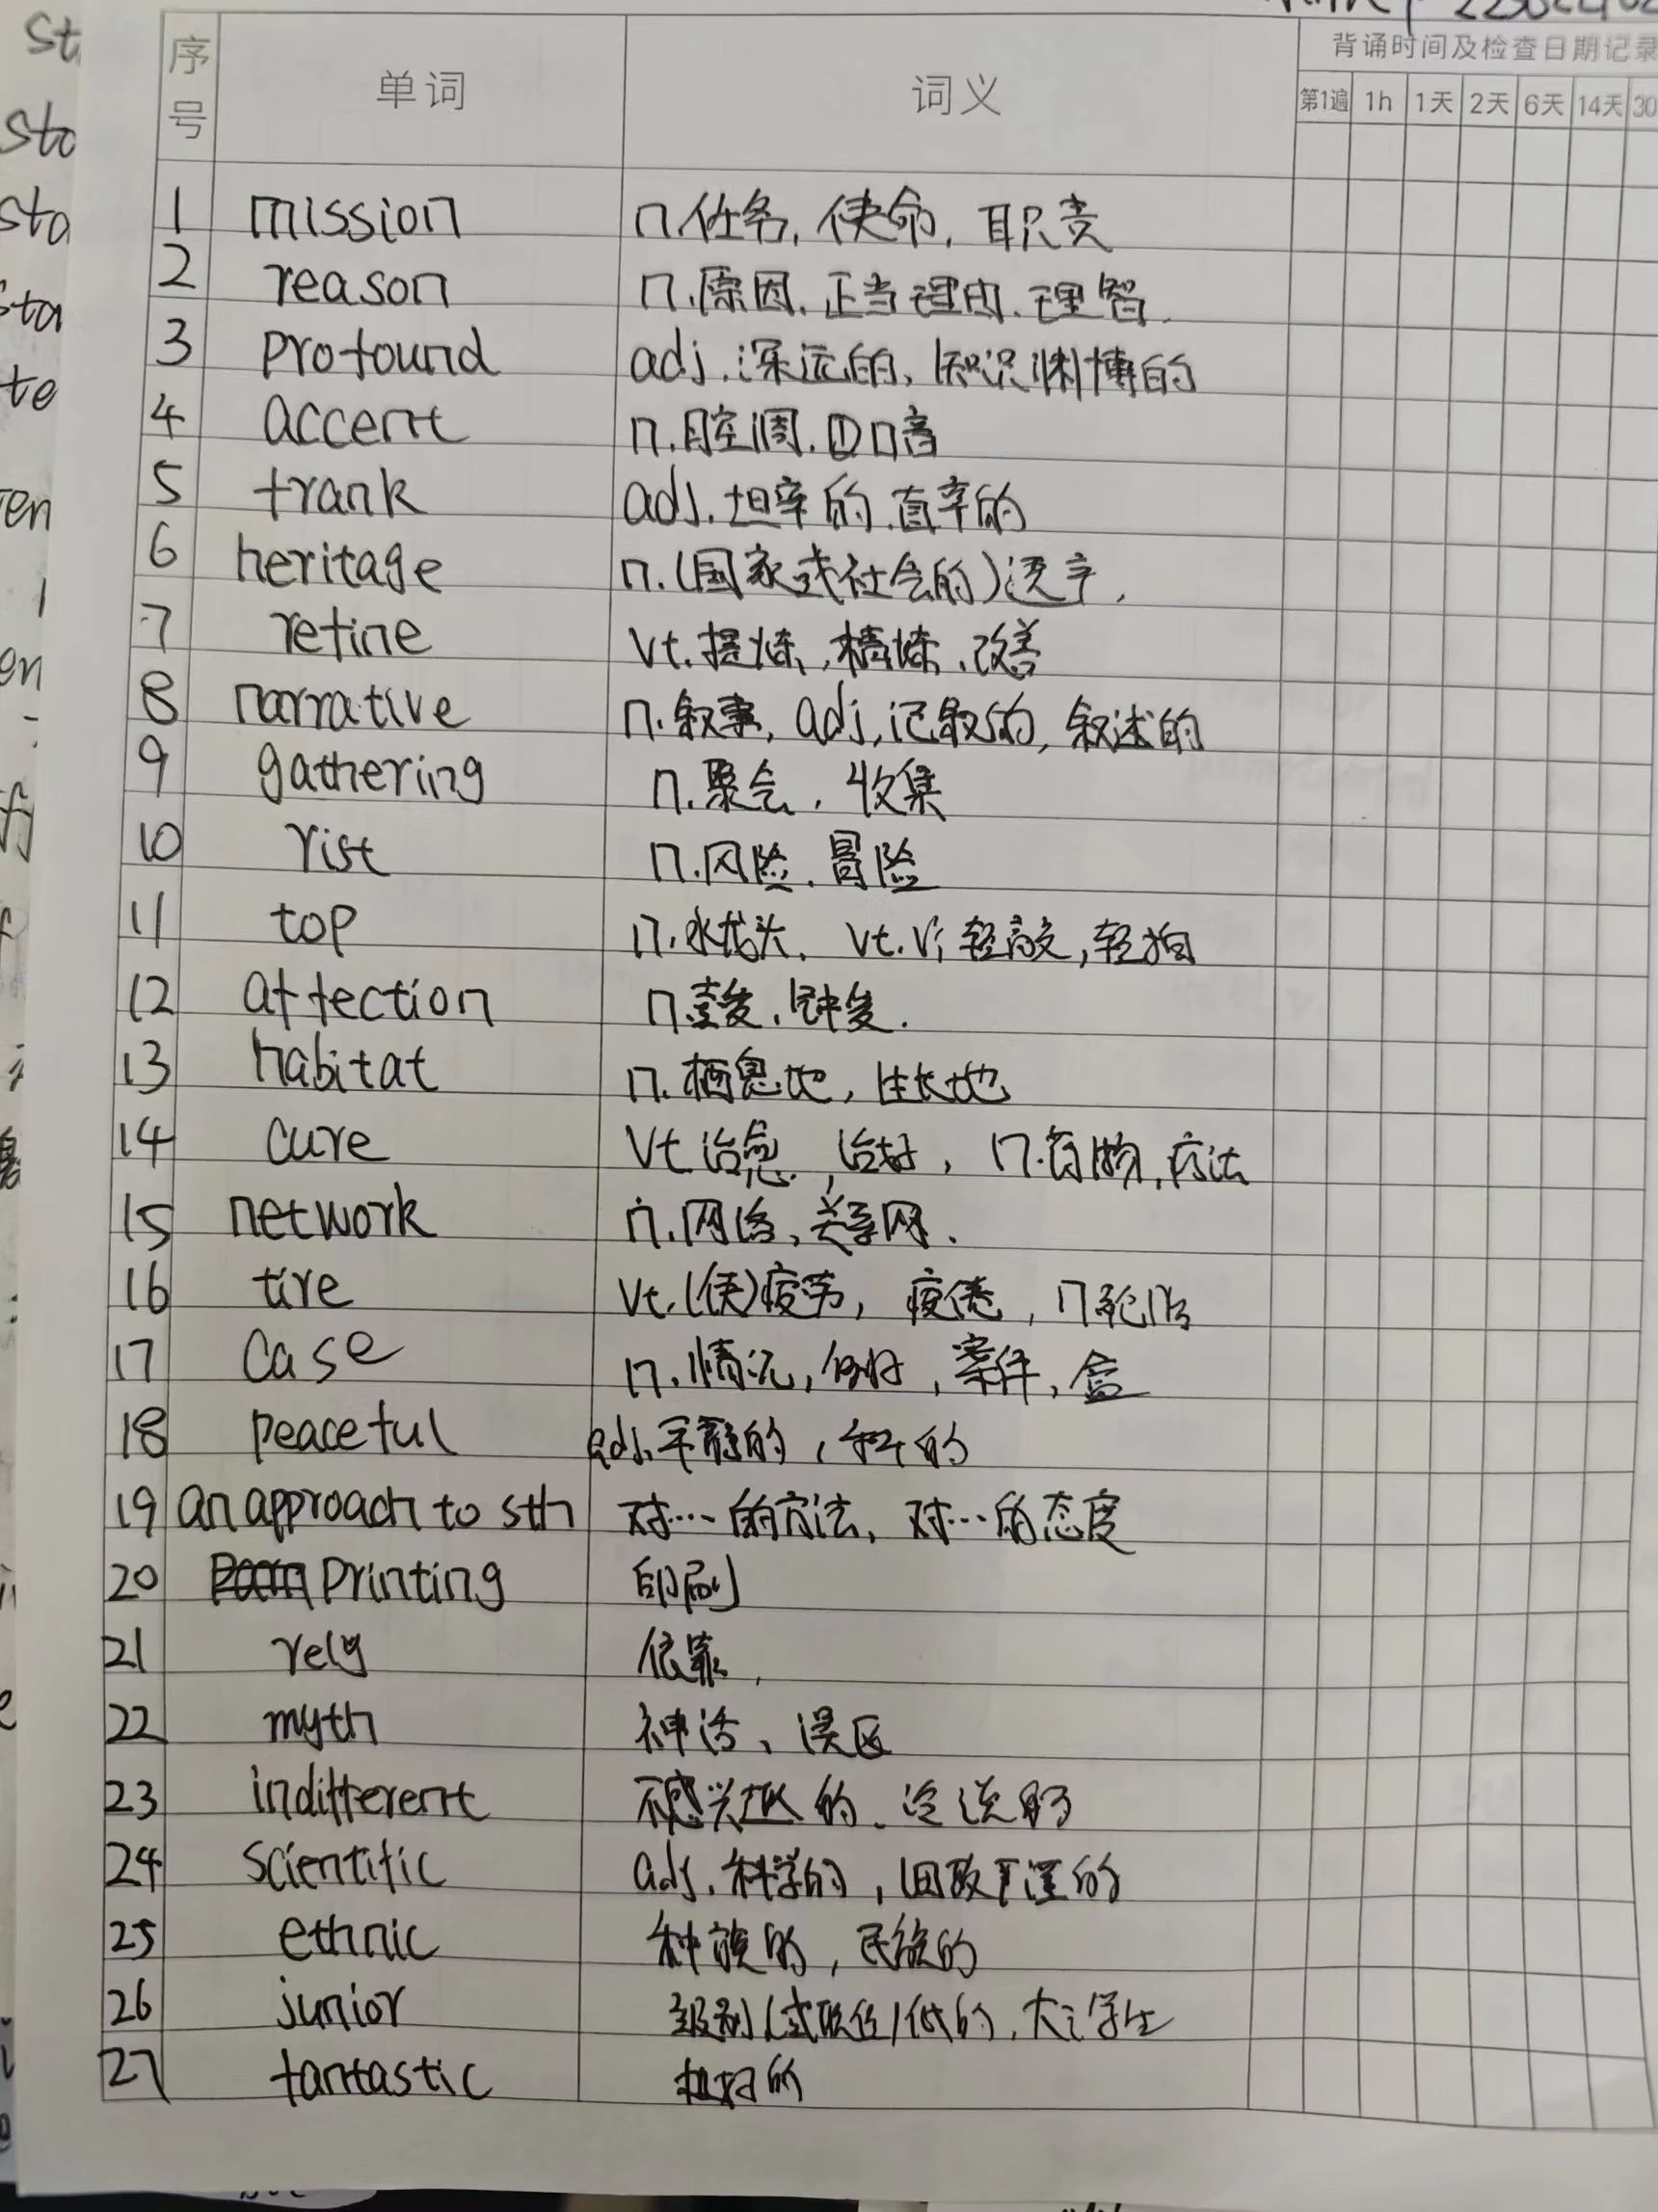 背诵时间及检查日期记录
序号 单词 词义 第1遍 1h 1天 2天 6天 14天 30
1 mission n.任务, 使命, 职责
2 reason n.原因. 正当理由. 理智.
3 profound adj.深远的, 知识渊博的
4 accent n.腔调. 口音
5 frank adj.坦率的.直率的
6 heritage n.(国家或社会的)遗产,
7 refine vt.提炼,精炼,改善
8 narrative n.叙事, adj,记叙的, 叙述的
9 gathering n.聚会, 收集
10 rist n.风险.冒险
11 top n.水龙头. vt.vi 轻敲,轻拍
12 affection n.喜爱,钟爱.
13 habitat n.栖息地, 生长地
14 cure vt 治愈, 治好, n.药物,疗法
15 network n.网络,关系网.
16 tire vt.(使)疲劳, 疲倦, n轮胎
17 case n.情况, 例子, 案件,盒
18 peaceful adj.平静的, 和平的
19 an approach to sth 对…的方法, 对…的态度
20 printing 印刷
21 rely 依靠,
22 myth 神话、误区
23 indifferent 不感兴趣的、冷淡的
24 scientific adj.科学的,
25 ethnic 种族的, 民族的
26 junior 级别(或职位)低的,大三学生
27 fantastic 极好的